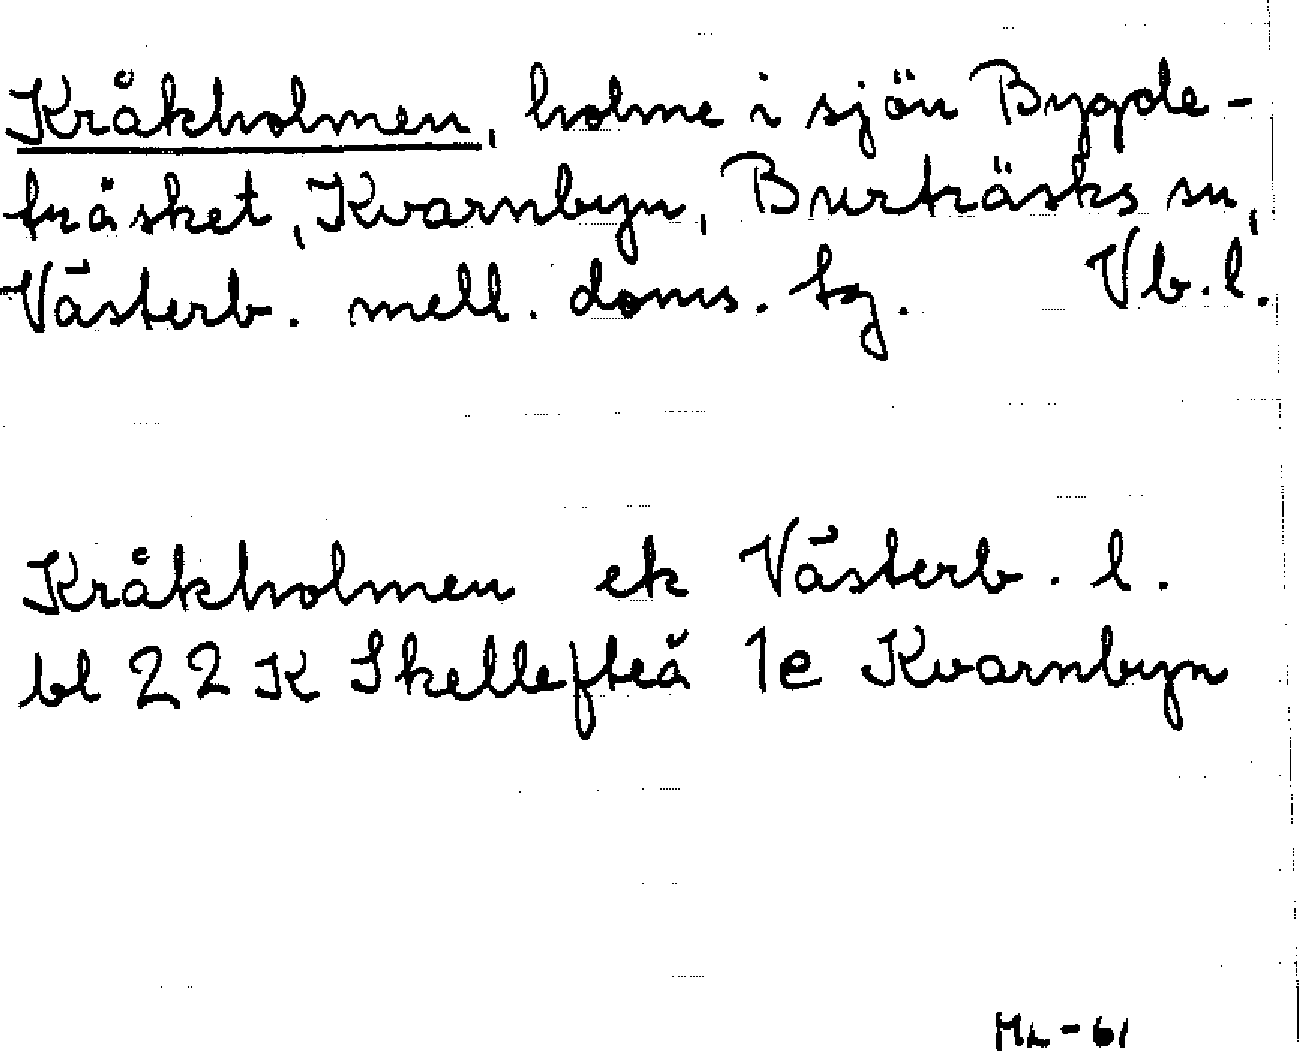 Kråkholmen, holme i sjön Bygde-
träsket, Kvarnbyn, Burträsks sn,
Västerb. mell. doms. tg. Vb.l.
Kråkholmen ek Västerb. l.
bl 22 K Skellefteå 1e Kvarnbyn
ML-61